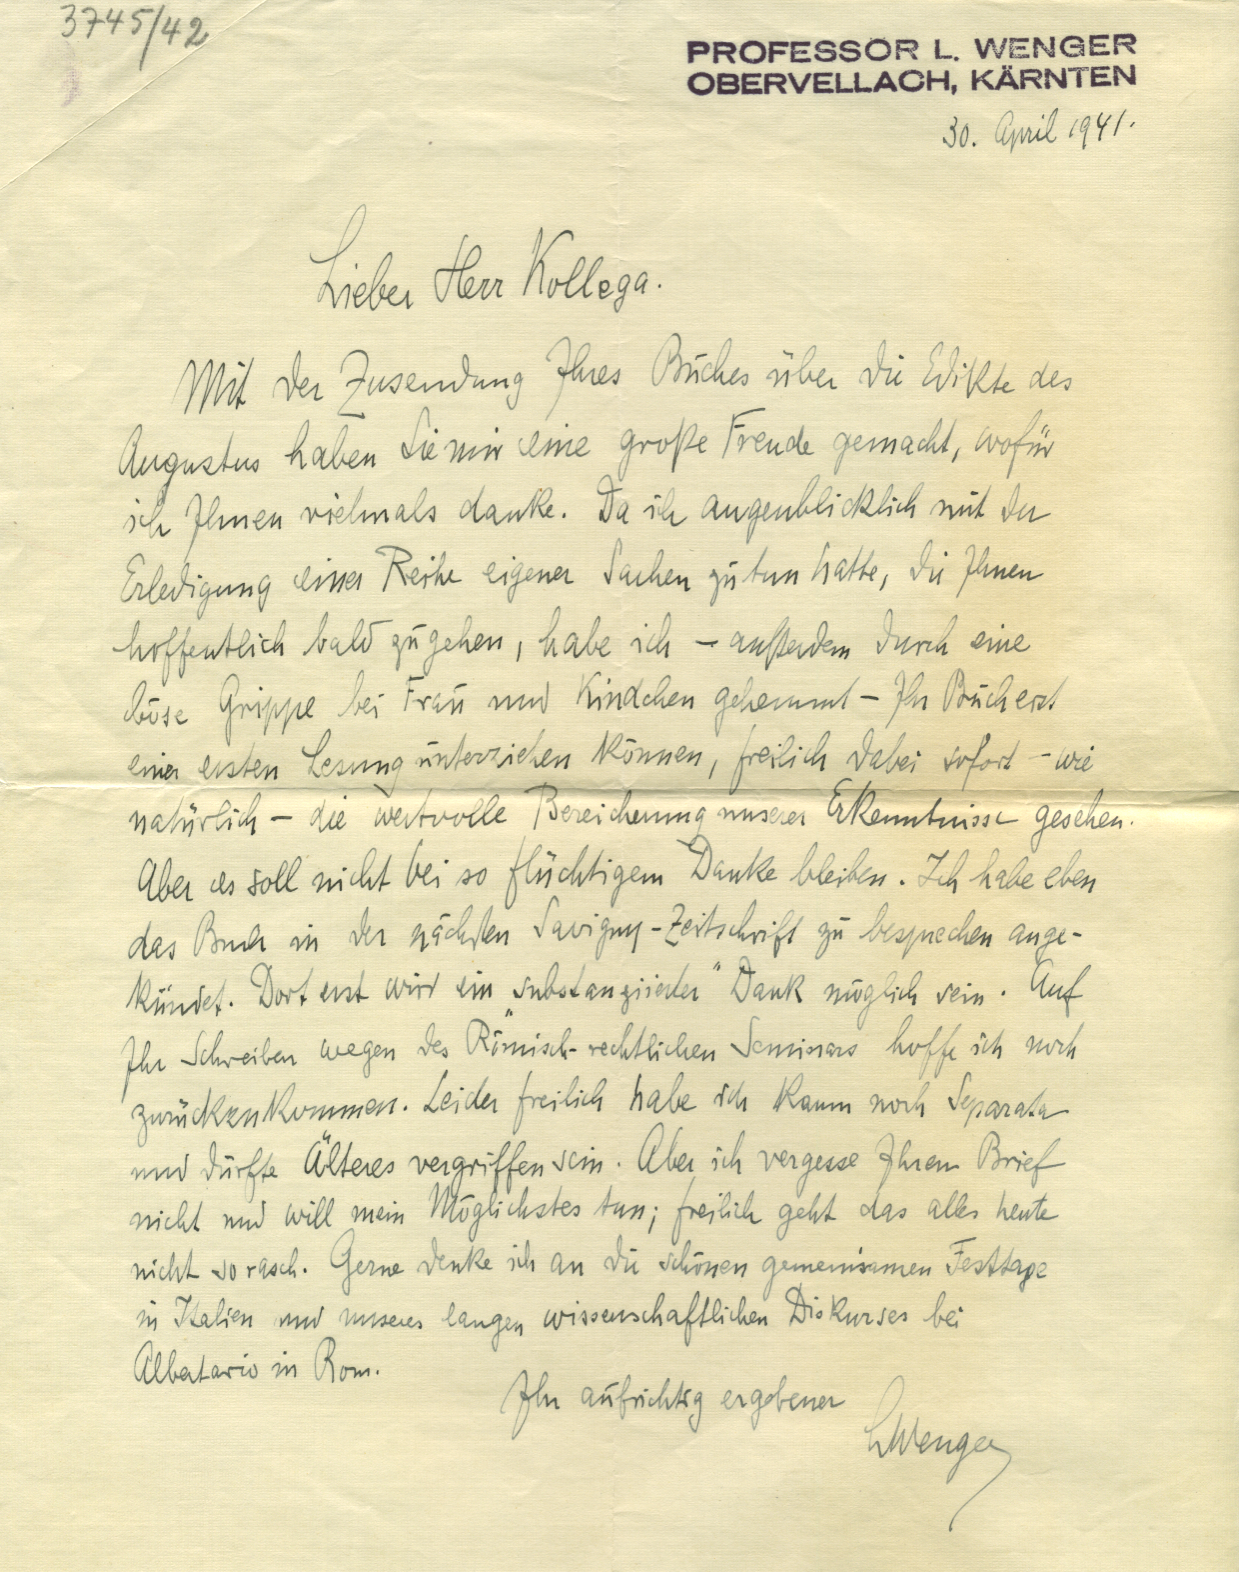 3745/42
PROFESSOR L. WENGER
OBERVELLACH, KÄRNTEN
30. April 1941.
Lieber Herr Kollega.
Mit der Zusendung Ihres Buches über die Edikte des
Augustus haben Sie mir eine große Freude gemacht, wofür
ich Ihnen vielmals danke. Da ich augenblicklich mit der
Erledigung einer Reihe eigener Sachen zu tun hatte, die Ihnen
hoffentlich bald zugehen, habe ich – außerdem durch eine
böse Grippe bei Frau und Kindchen gehemmt – Ihr Buch erst
einer ersten Lesung unterziehen können, freilich dabei sofort – wie
natürlich – die wertvolle Bereicherung unserer Erkenntnisse gesehen.
Aber es soll nicht bei so flüchtigem Danke bleiben. Ich habe eben
das Buch in der nächsten Savigny-Zeitschrift zu besprechen ange-
kündet. Dort erst wird ein „substanziierter" Dank möglich sein. Auf
Ihr Schreiben wegen des Römisch-rechtlichen Seminars hoffe ich noch
zurückzukommen. Leider freilich habe ich kaum noch Separata
und dürfte Älteres vergriffen sein. Aber ich vergesse Ihren Brief
nicht und will mein Möglichstes tun; freilich geht das alles heute
nicht so rasch. Gerne denke ich an die schönen gemeinsamen Festtage
in Italien und unseres langen wissenschaftlichen Diskurses bei
Albertario in Rom.
Ihr aufrichtig ergebener
LWenger